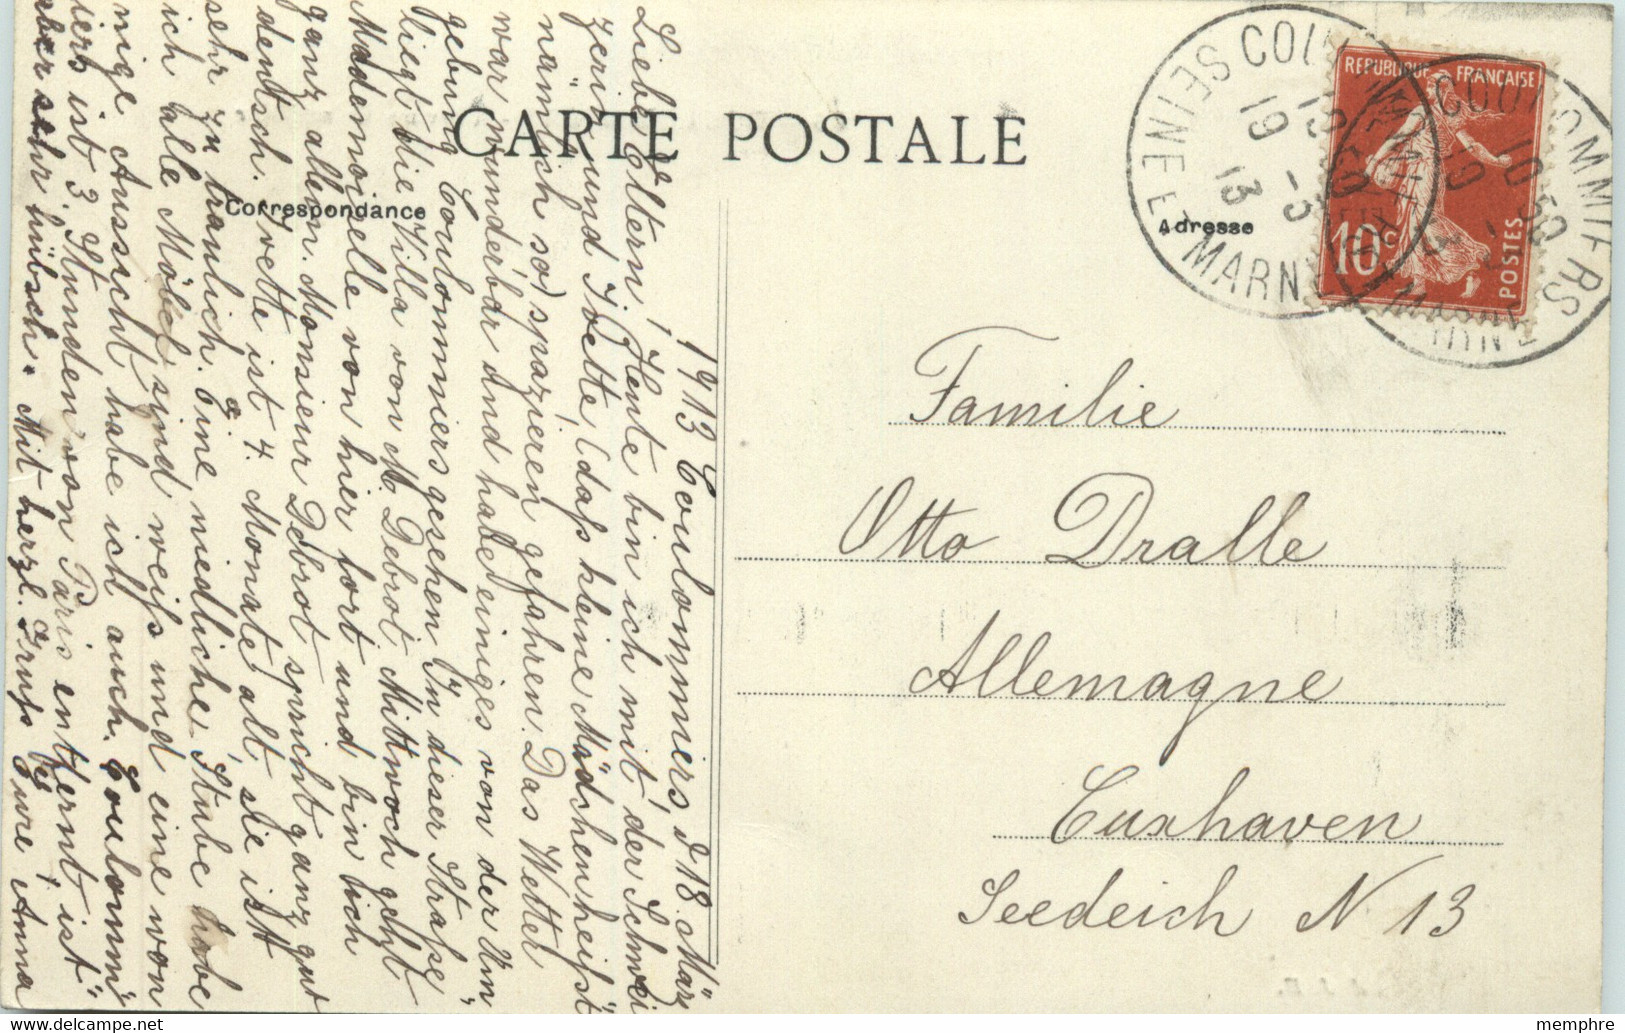 CARTE POSTALE
Correspondance
Adresse
REPUBLIQUE FRANÇAISE
10c
POSTES
COULOMMIERS
SEINE ET MARNE
10 50
19 - 3
13
1913 Coulommiers, d 18. März
Liebe Eltern! Heute bin ich mit der Schwei
zerin und Ivette, (dass kleine Mädchen heißt
nämlich so) spazieren gefahren. Das Wetter
war wunderbar und habe einiges von der Um"
gebung Coulommiers gesehen. In dieser Straße
liegt die Villa von M. Debrot. Mittwoch geht
Maddemoiselle von hier fort und bin ich
ganz allein. Monsieur Debrot spricht ganz gut
deutsch. Ivette ist 4. Monate alt, sie ist
sehr zutraulich. Eine niedliche Stube habe
ich alle Möbel sind weiß und eine won"
nige Aussicht habe ich auch. Coulomm"
iers ist 3 Stunden von Paris entfernt, ist
aber sehr hübsch. Mit herzl. Gruß bl. Eure Anna
Familie
Otto Dralle
Allemagne
Cuxhaven
Seedeich N 13
memphre